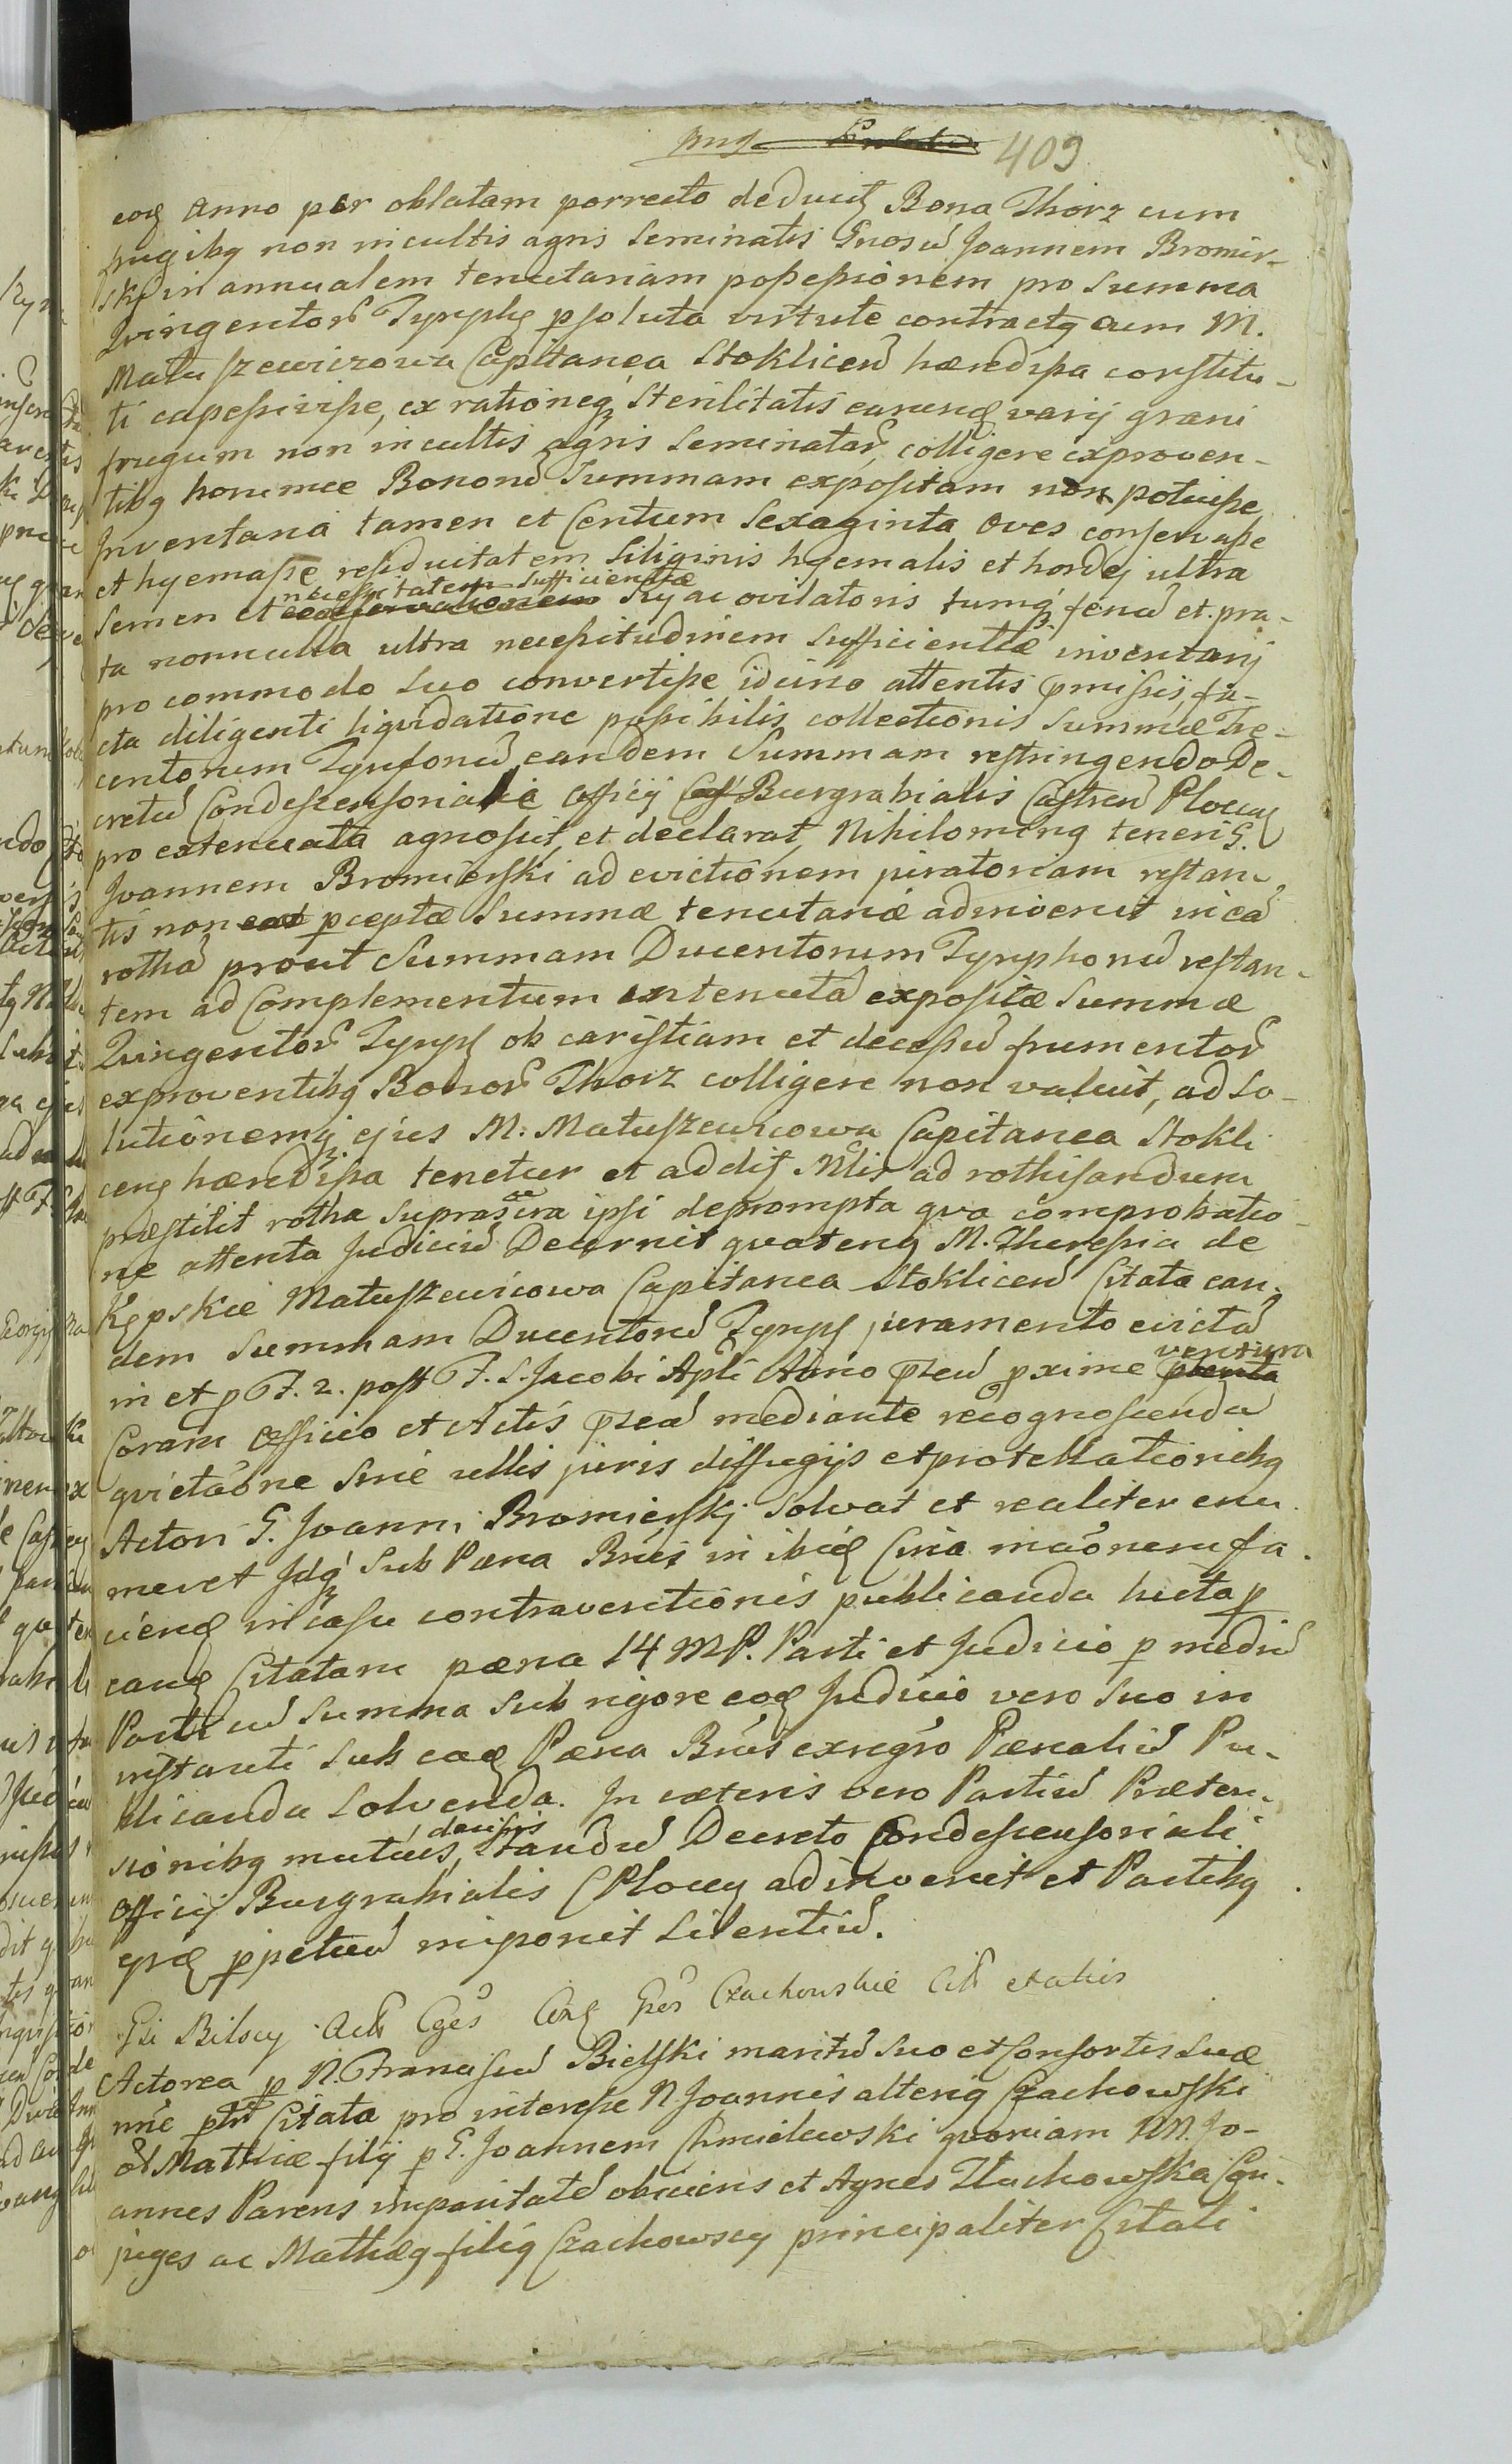 409
eoq anno per oblatam porrecto deducit Bona Thorz cum
frugibq non in cultis agris seminatis Gnosu Joannem Bromir-
ski in annualem tenutariam possessionem pro Summa
Qvingentor Tynphq psoluta virtute contractq cum M.
Matuszewiczowa Capitanea Stoklicen hærediſsa constitu-
ti capessivisse, ex rationeq sterilitatis earumq varij grani
frugum non in cultis agris seminatar, colligere ex proven-
tibq honimce Bonoru Summam expositam non potuisse
Inventaria tamen et Centum Sexaginta Oves conservasse
et hyemasse residuitatem Siliginis hyemalis et hordej ultra
necessitatem sufficientiæ
semen et ac ovilatoris tumq fænu et pra-
ta nonnulla ultra necessitudinem sufficientiæ inventarij
pro commodo suo convertisse idcirco attentis pmissis, fa-
cta diligenti liqvidatione possibilis collectionis Summæ Tre-
centorum Tynfonu, eandem Summam restringendo De-
cretu Condescensoriale officij Burgrabialis Castren Plocen
pro extenuata agnoscit, et declarat, Nihilominq teneri G.
Joannem Bromierski ad evictionem juratoriam restan-
tis non pceptæ Summæ tenutariæ adinvenit in ea
rotha prout Summam Ducentorum Tynphonu restan-
tem ad Complementum in tenuta expositæ Summæ
Qvingentor Tynph ob caristiam et decessu frumentor
ex proventibq Bonor Thorz colligere non valuit, ad so-
lutionemq ejus M. Matuszewicowa Capitanea Stokli
cenq hærediſsa tenetur et addit Mlis ad rothisandum
præstitit rotha suprascra ipsi deprompta qva comprobatio-
ne attenta Judiciu Decernit qvatenq M. Theresia de
Kępskie Matuszewicowa Capitanea Stoklicen Citata ean-
dem Summam Ducentoru Tynph juramento evicta
ventura
in et p F. 2. post F. S. Jacobi Apli Anno pxime
Coram Officio et Actis mediante recognoscenda
qvietaone sine ullis juris diffugijs et protestationibq
Actori G. Joanni Bromierskj solvat et realiter enu-
meret Idq sub Pæna Bnis in
in casu contraventionis publicanda
Citatam pæna 14 MP. Parti et Judicio p mediu
Summa sub rigore eoq Judicio vero suo in
instanti sub Pæna Bnis ex regro Pænaliu Pu-
blicanda solvenda. In cæteris vero Partiu Præten-
decisis
sionibq mutuis, standu Decreto Condescensoriali
Officij Burgrabialis Plocen adinvenit et Partibq
ppetuu imponit silentiu.
Gsi Bilscy Czachowskie Cit et aliis
Actorea p N. Franciscu Bielski maritu suo et Consortis suæ
nne Citata pro interesse N Joannis alterq Czachowski
et Mathiæ filij p G. Joannem Chmielewski qvoniam NN. Jo-
annes Parens imparitate obiiciens et Agnes Czachowska Con-
juges ac Mathæq filiq Czachowscy principaliter Citati